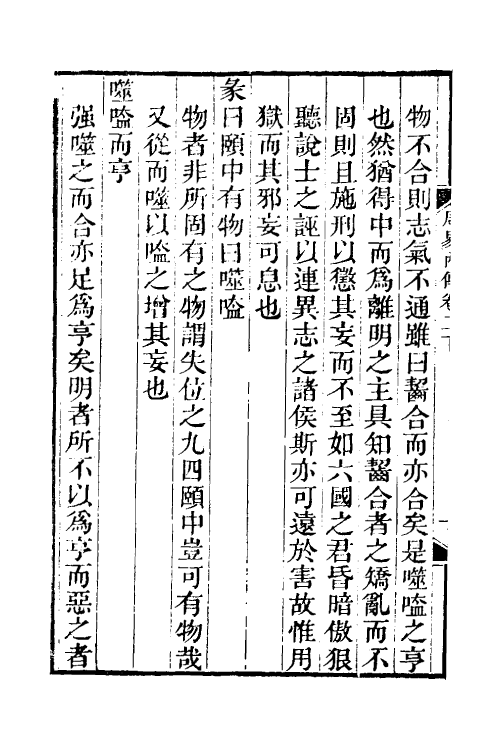 物不合則志氣不通雖曰齧合而亦合矣是噬嗑之亨
也然猶得中而爲離明之主具知齧合者之矯亂而不
固則且施刑以懲其妄而不至如六國之君昏暗傲狠
聽說士之誣以連異志之諸侯斯亦可遠於害故惟用
獄而其邪妄可息也
彖曰頤中有物曰噬嗑
物者非所固有之物謂失位之九四頤中豈可有物哉
又從而噬以嗑之增其妄也
噬嗑而亨
强噬之而合亦足爲亨矣明者所不以爲亨而惡之者
周易內傳卷二下